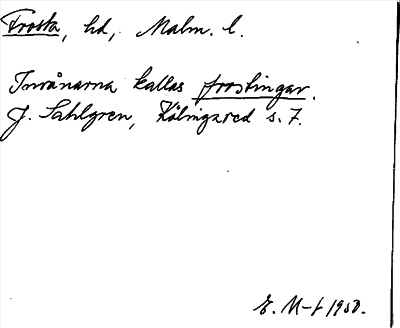 Frosta, hd, Malm. l.
Invånarna kallas frostingar.
J. Sahlgren, Kölingared s. 7.
E. M-f 1950.